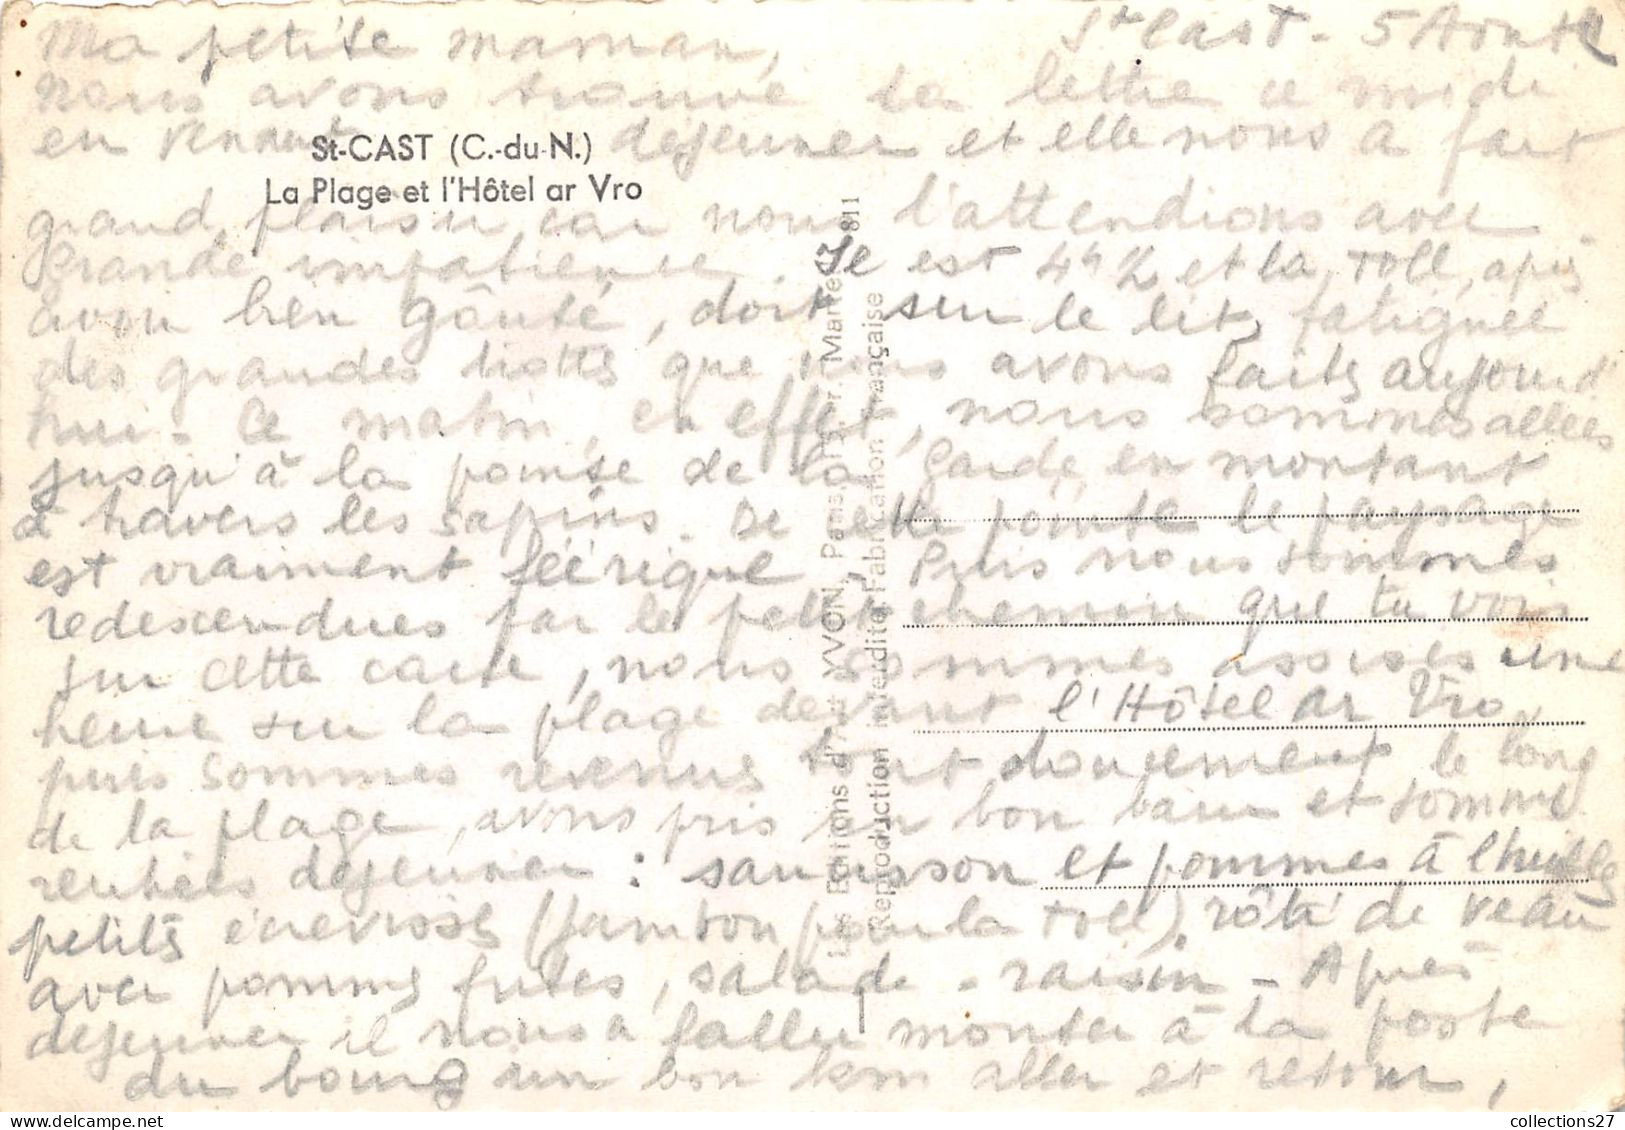 St Cast - 5 Août
Ma petite maman,
nous avons trouvé ta lettre ce midi
en venant déjeuner et elle nous a fait
St-CAST (C.-du-N.)
La Plage et l'Hôtel ar Vro
grand plaisir car nous l'attendions avec
grande impatience. Il est 4h ½ et la Toll, après
avoir bien goûté, dort sur le lit, fatiguée
des grandes trottes que nous avons faites aujourd'
hui. Ce matin, en effet, nous sommes allées
jusqu'à la pointe de la Garde, en montant
à travers les sapins. De cette pointe le paysage
est vraiment féérique. Puis nous sommes
redescendues par le petit chemin que tu vois
sur cette carte, nous sommes assises une
heure sur la plage devant l'Hôtel ar Vro,
puis sommes revenues tout doucement le long
de la plage, avons pris un bon bain et sommes
rentrées déjeuner : saucisson et pommes à l'huile
petites écrevisses (jambon pour la Toll), rôti de veau
avec pommes frites, salade - raisin - Après
déjeuner il nous a fallu monter à la poste
du bourg un bon km aller et retour,
Les Editions d'Art YVON, Paris
Reproduction interdite. Fabrication française
811
collections27